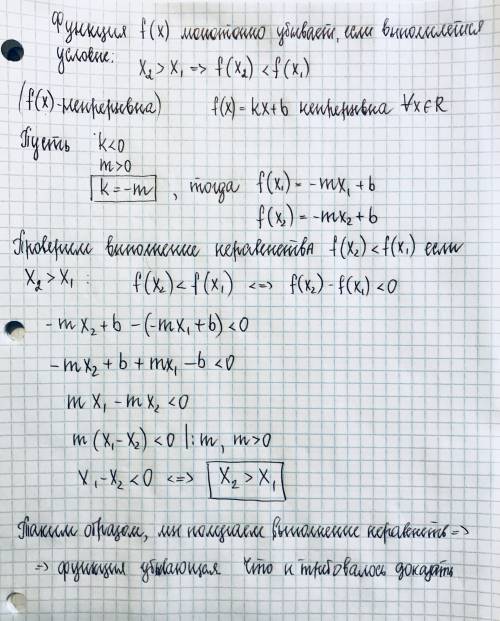 Функция f(x) монотонно убывает, если выполняется
условие: x₂ > x₁ => f(x₂) < f(x₁)
(f(x)-непрерывна) f(x) = kx+b непрерывна ∀x∈R
Пусть k<0
m>0
k = -m , тогда f(x₁) = -mx₁ + b
f(x₂) = -mx₂ + b
Проверим выполнение неравенства f(x₂) < f(x₁) если
x₂ > x₁ : f(x₂) < f(x₁) <=> f(x₂) - f(x₁) < 0
-mx₂ + b - (-mx₁ + b) < 0
-mx₂ + b + mx₁ - b < 0
mx₁ - mx₂ < 0
m(x₁-x₂) < 0 |:m, m>0
x₁-x₂ < 0 <=> x₂ > x₁
Таким образом, мы получаем выполнение неравенств =>
=> функция убывающая Что и требовалось доказать